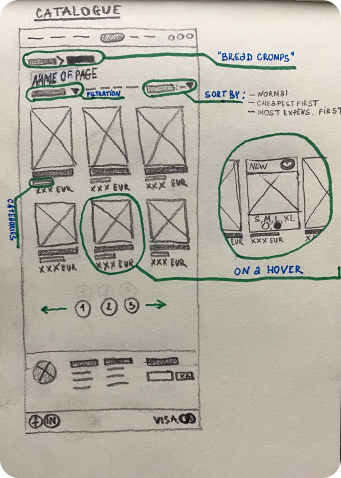 CATALOGUE
"BREAD CRUMPS"
NAME OF PAGE
FILTRATION
SORT BY: - NORMAL
- CHEAPEST FIRST
- MOST EXPENS. FIRST
CATEGORIES
XXX EUR
XXX EUR
XXX EUR
NEW
S, M, L, XL
EUR XXX EUR XX
XXX EUR
XXX EUR
XXX EUR
ON a HOVER
1 2 3
f IN
VISA